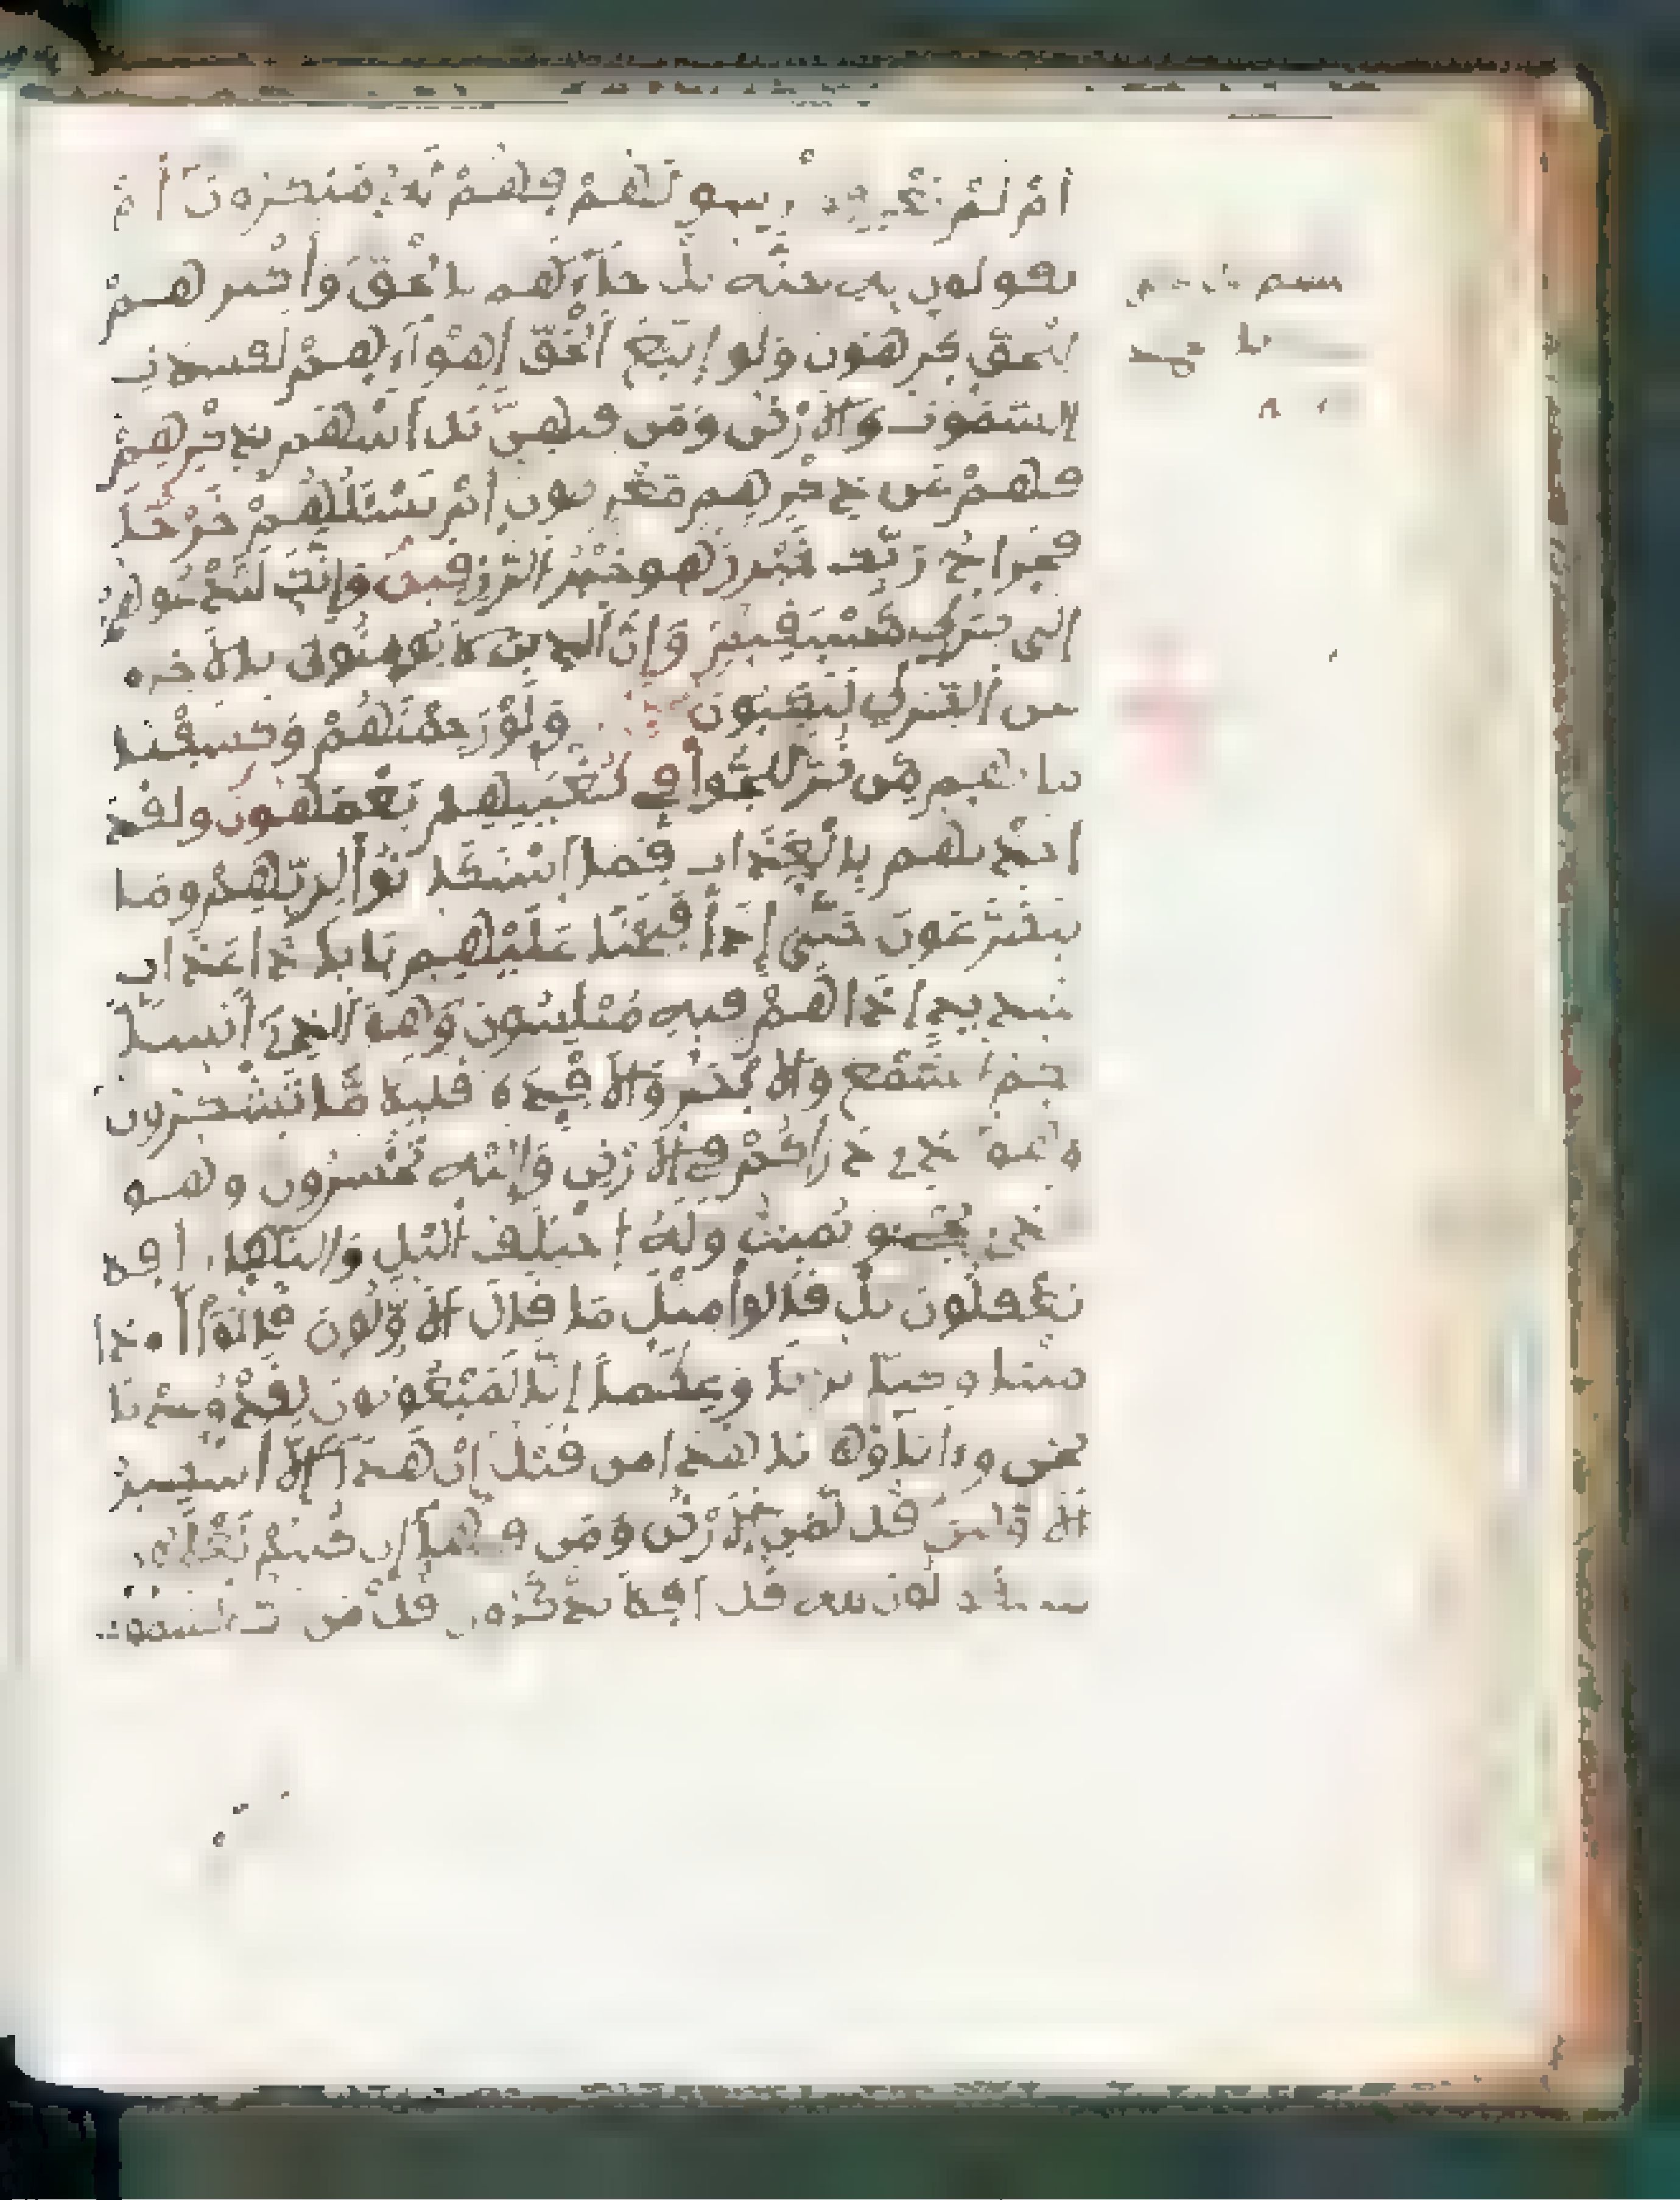 أم لم يعرفوا رسولهم فهم له منكرون أم
يقولون به جنة بل جاءهم بالحق وأكثرهم
للحق كرهون ولو إتبع ألحق أهواءهم لفسدت
السموت والأرض ومن فيهن بل أتينهم بذكرهم
فهم عن ذكرهم معرضون أم تسئلهم خرجا
فخراج ربك خير وهو خير الرزقين وإنك لتدعوهم
إلى صرط مستقيم وإن الذين لا يومنون بالأخرة
عن الصرط لنكبون ولو رحمنهم وكشفنا
ما بهم من ضر للجوا في طغينهم يعمهون ولقد
أخذنهم بالعذاب فما استكانوا لربهم وما
يتضرعون حتى إذا فتحنا عليهم بابا ذا عذاب
شديد إذا هم فيه مبلسون وهو الذي أنشأ
لكم السمع والأبصر والأفدة قليلا ما تشكرون
وهو الذي ذرأكم في الأرض وإليه تحشرون وهو
الذي يحي ويميت وله إختلف اليل والنهار أفلا
تعقلون بل قالوا مثل ما قال الأولون قالوا أ ذا
متنا وكنا ترابا وعظما إنا لمبعوثون لقد وعدنا
نحن وءاباؤنا هذا من قبل إن هذا إلا أسطير
الأولين قل لمن الأرض ومن فيها إن كنتم تعلمون
سيقولون لله قل أفلا تذكرون قل من رب السموت